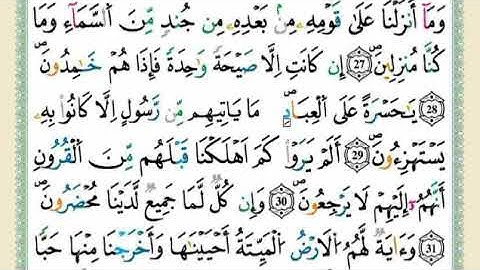 وَمَآ أَنزَلْنَا عَلَىٰ قَوْمِهِۦ مِنۢ بَعْدِهِۦ مِن جُندٍ مِّنَ اَ۬لسَّمَآءِ وَمَا
كُنَّا مُنزِلِينَۖ 27 إِن كَانَتِ اِلَّا صَيْحَةً وَٰحِدَةً فَإِذَا هُمْ خَٰمِدُونَۖ
28 يَٰحَسْرَةً عَلَى اَ۬لْعِبَادِۖ مَا يَاتِيهِم مِّن رَّسُولٍ اِلَّا كَانُواْ بِهِۦ
يَسْتَهْزِءُونَۖ 29 أَلَمْ يَرَوْاْ كَمَ اَهْلَكْنَا قَبْلَهُم مِّنَ اَ۬لْقُرُونِ
أَنَّهُمُۥٓ إِلَيْهِمْ لَا يَرْجِعُونَۖ 30 وَإِن كُلٌّ لَّمَا جَمِيعٌ لَّدَيْنَا مُحْضَرُونَۖ
31 وَءَايَةٌ لَّهُمُ اُ۬لَارْضُ اُ۬لْمَيِّتَةُ أَحْيَيْنَٰهَا وَأَخْرَجْنَا مِنْهَا حَبّاً